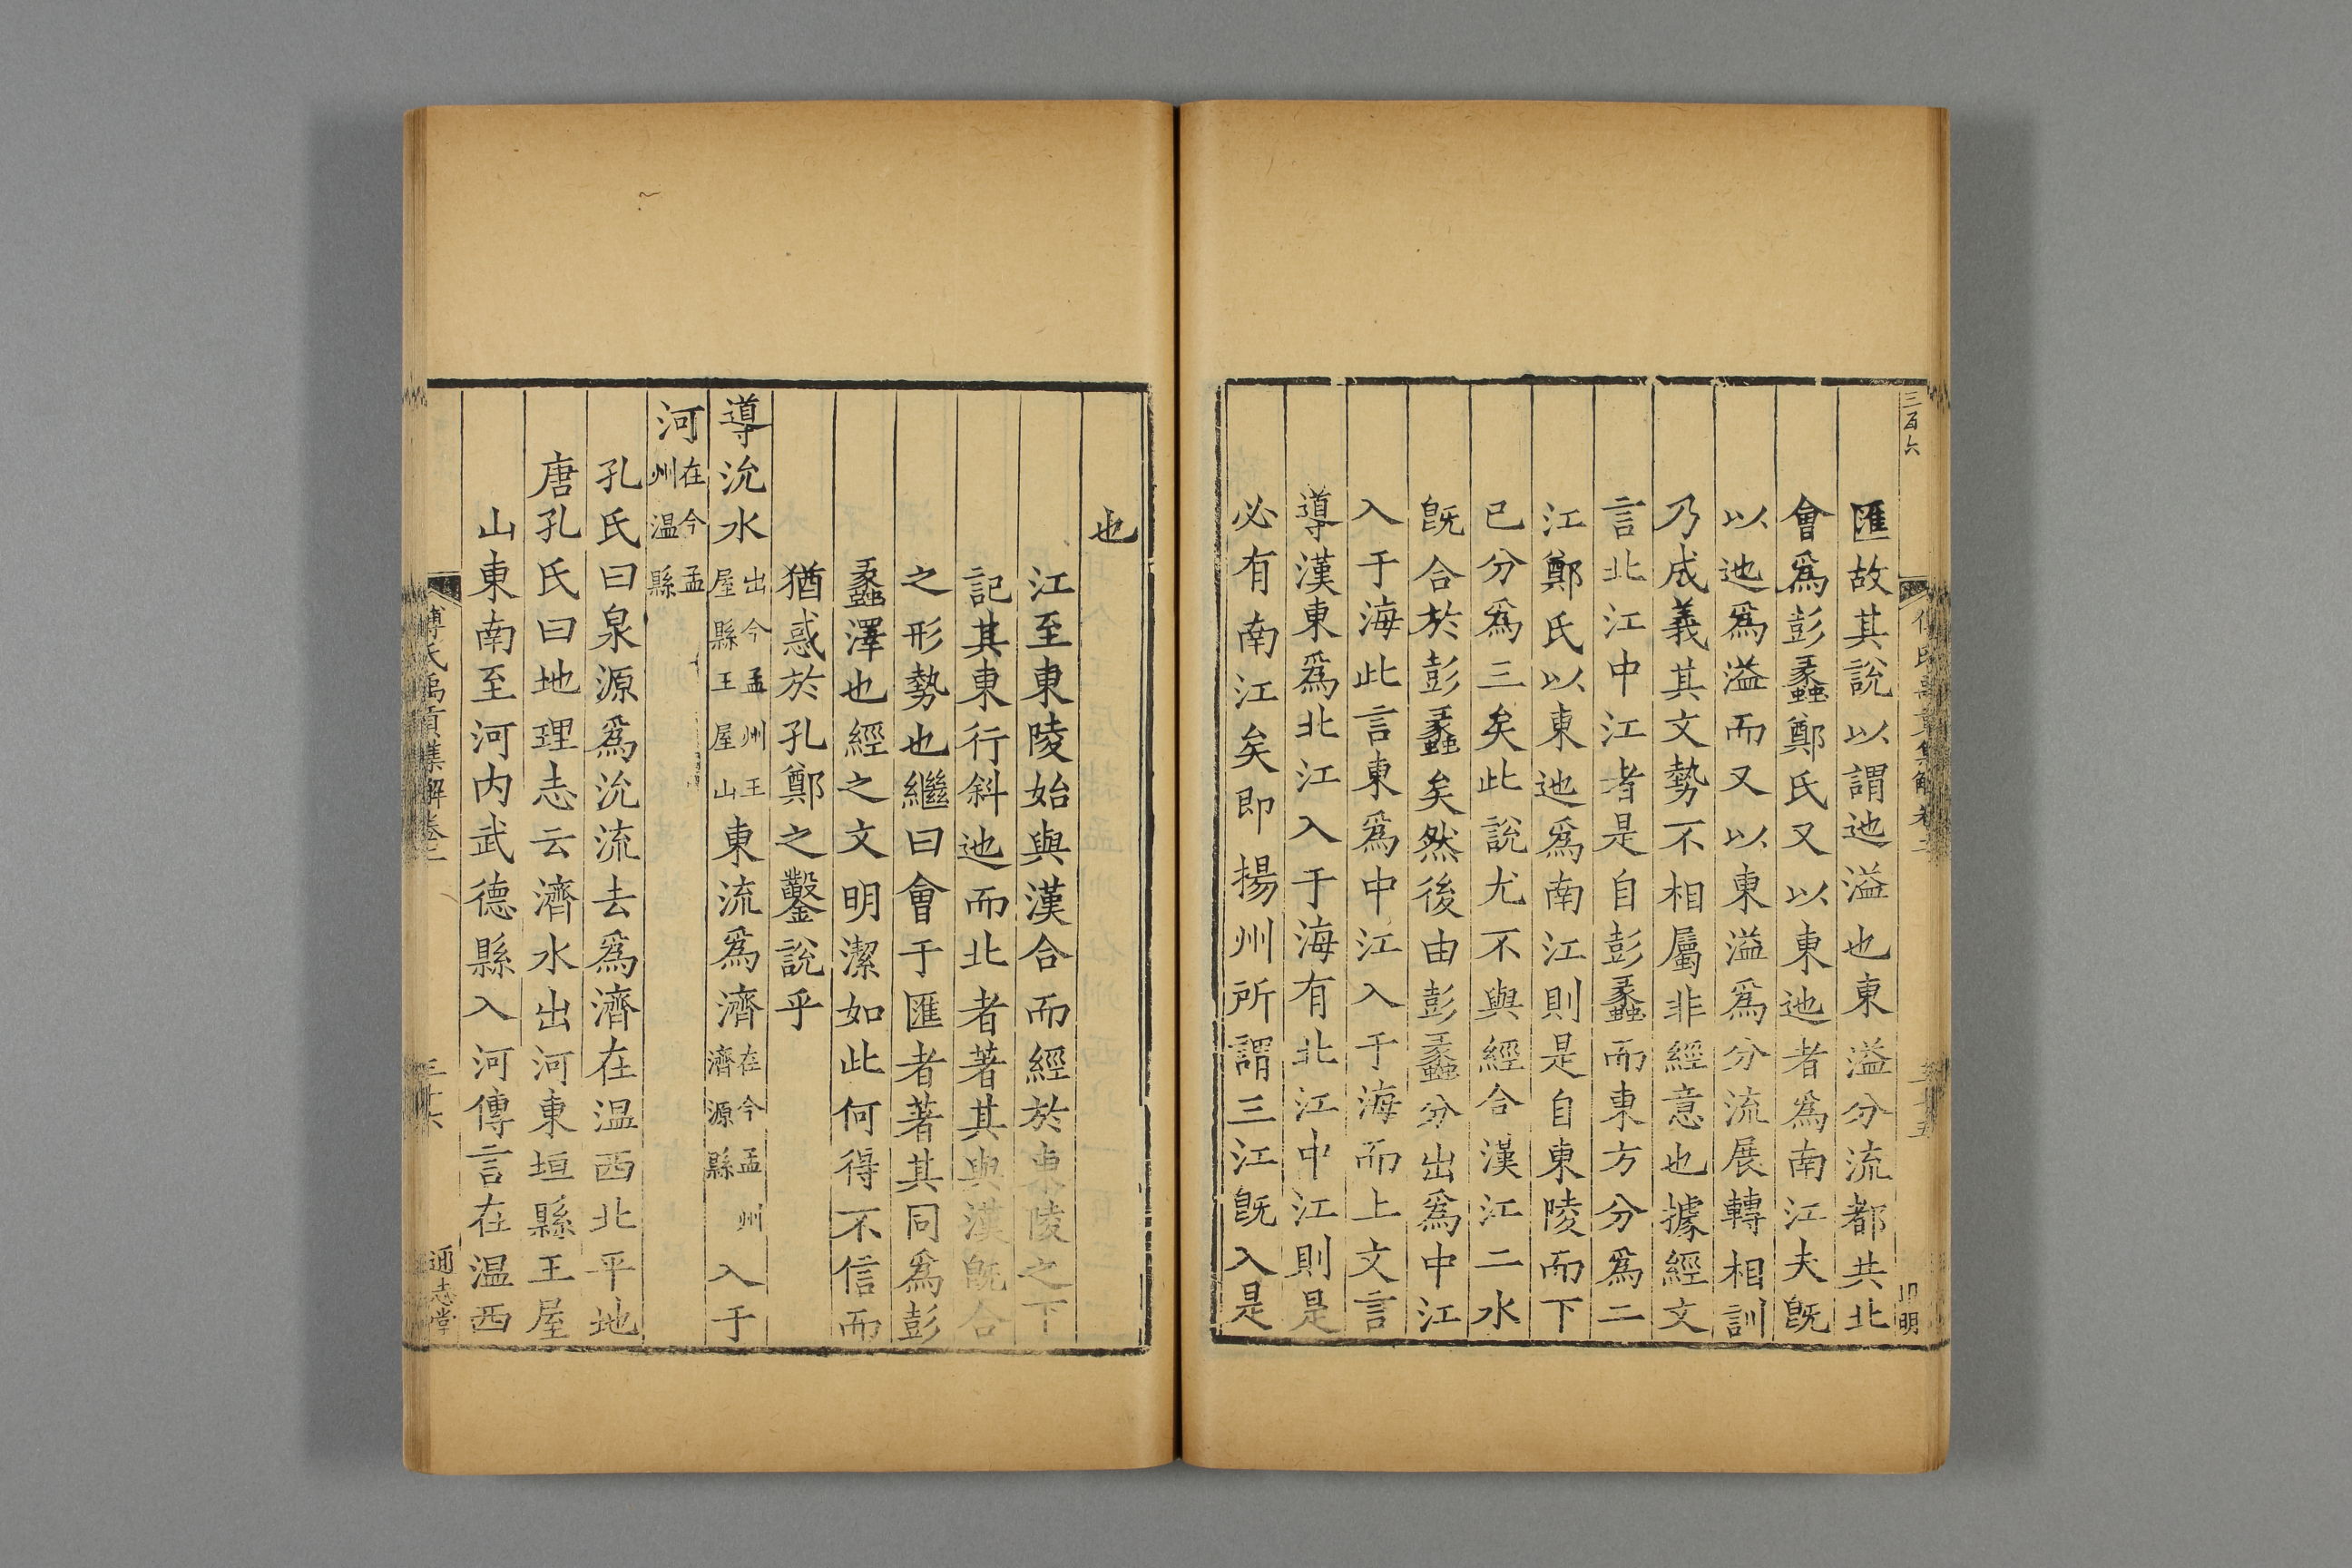 三百六
匯故其說以謂迆溢也東溢分流都共北
會爲彭蠡鄭氏又以東迆者爲南江夫旣
以迆爲溢而又以東溢爲分流展轉相訓
乃成義其文勢不相屬非經意也據經文
言北江中江者是自彭蠡而東方分爲二
江鄭氏以東迆爲南江則是自東陵而下
已分爲三矣此說尤不與經合漢江二水
旣合於彭蠡矣然後由彭蠡分出爲中江
入于海此言東爲中江入于海而上文言
導漢東爲北江入于海有北江中江則是
必有南江矣卽揚州所謂三江旣入是
也
江至東陵始與漢合而經於東陵之下
記其東行斜迆而北者著其與漢旣合
之形勢也繼曰會于匯者著其同爲彭
蠡澤也經之文明潔如此何得不信而
猶惑於孔鄭之鑿說乎
導沇水出今孟州王屋縣王屋山東流爲濟在今孟州濟源縣入于
河在今孟州温縣
孔氏曰泉源爲沇流去爲濟在温西北平地
唐孔氏曰地理志云濟水出河東垣縣王屋
山東南至河内武德縣入河傳言在温西
傅氏禹貢集解卷二
三十六
通志堂